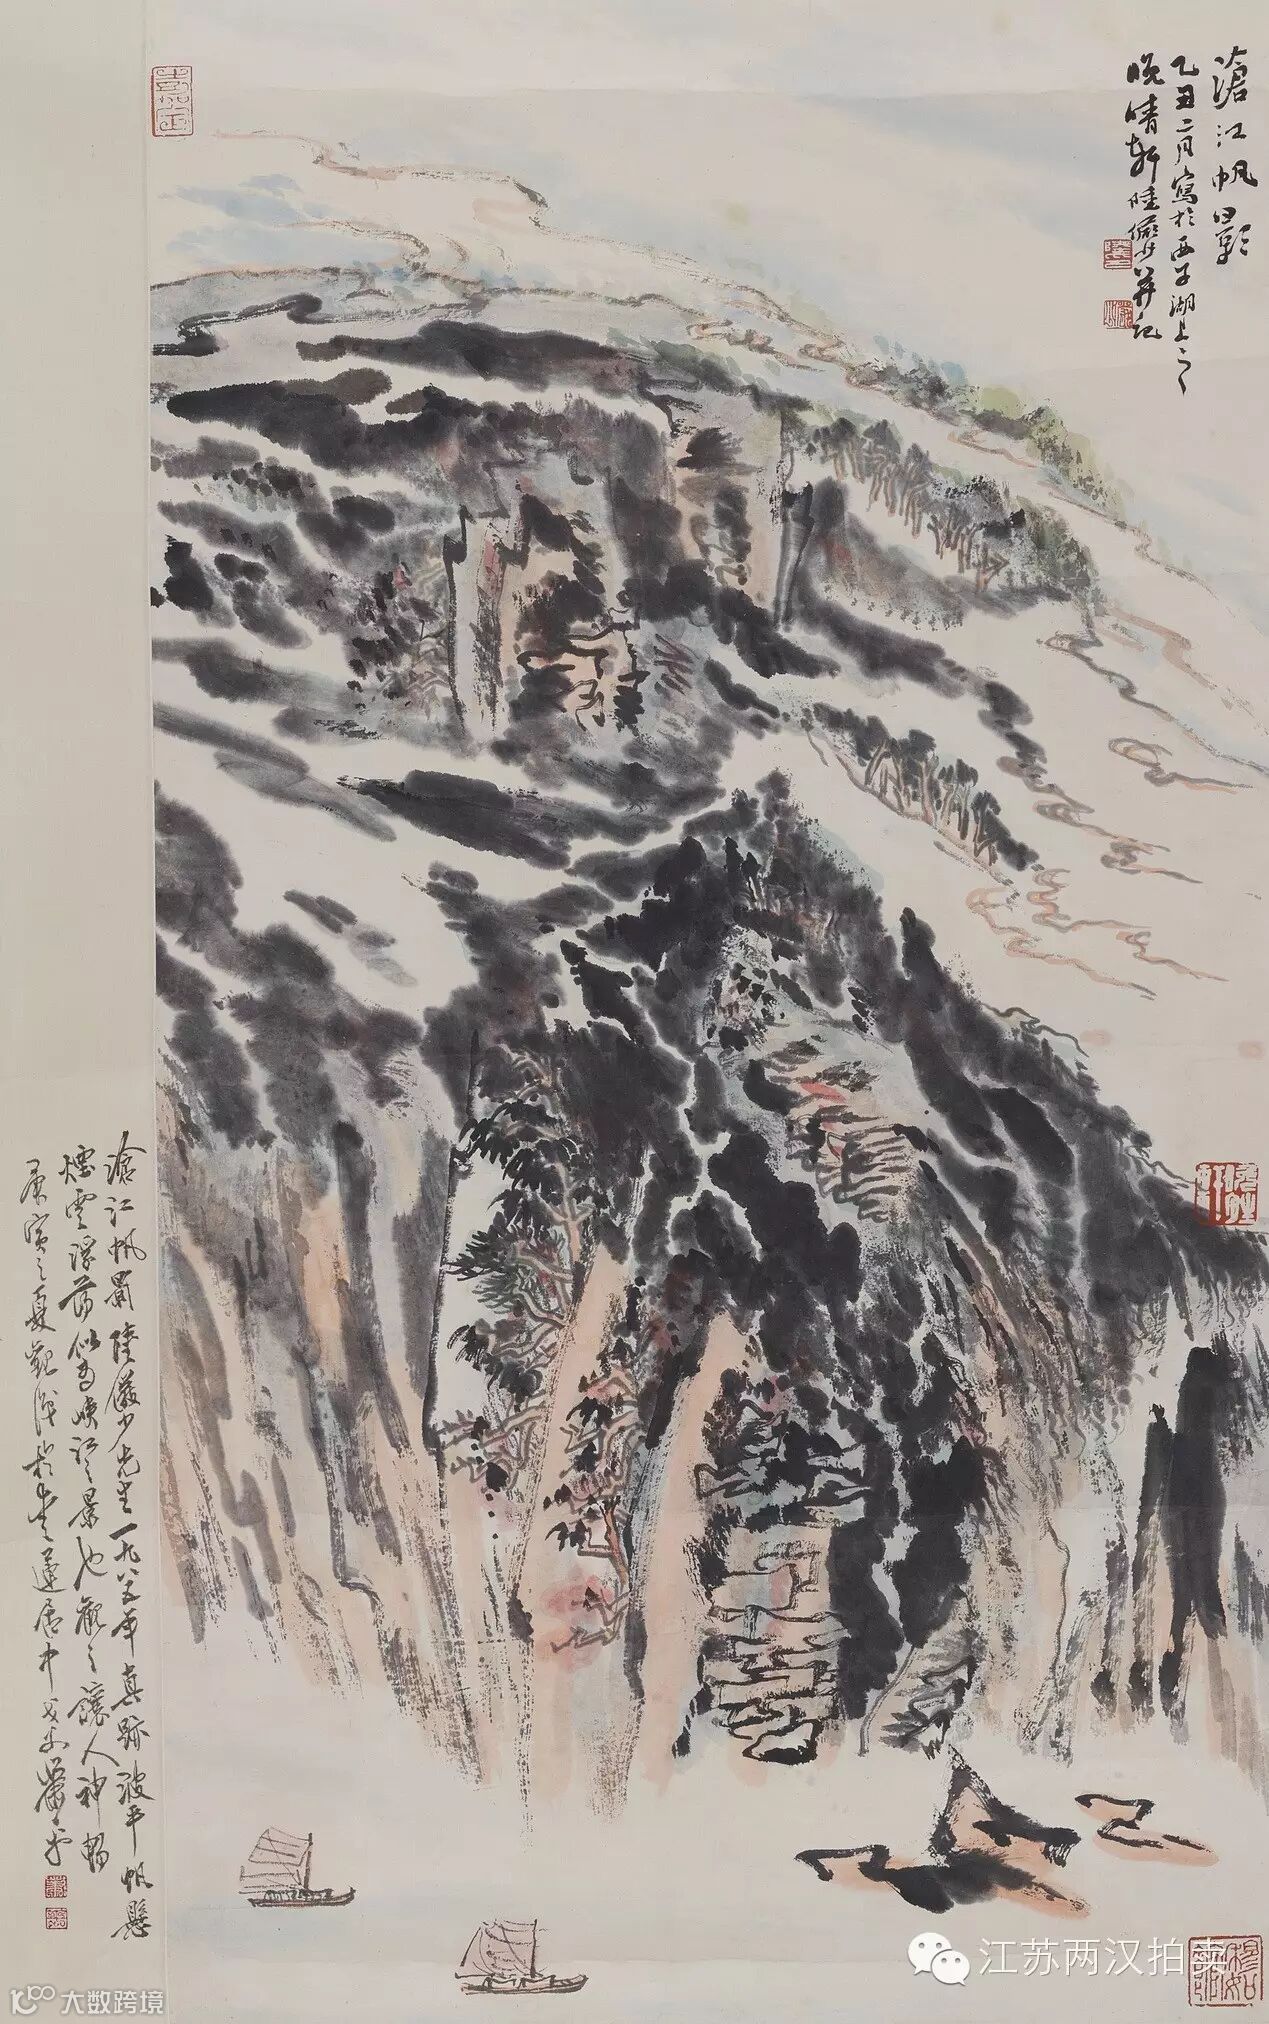 滄江帆影
乙丑二月寫於西子湖上之
晚晴軒陸儼少並記
滄江帆影陸儼少先生一九八五年真跡波平帆懸
煙雲浮蕩似為峽江之景也觀之讓人神暢
庚寅之夏觀後於愛蓮居中
江苏两汉拍卖
大数跨境